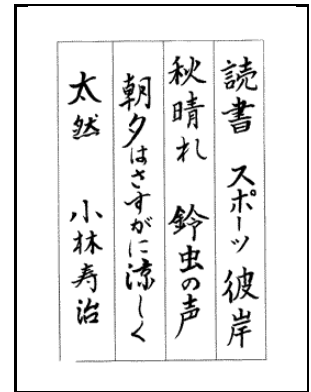 読書 スポーツ 彼岸
秋晴れ 鈴虫の声
朝夕はさすがに涼しく
太然 小林寿治